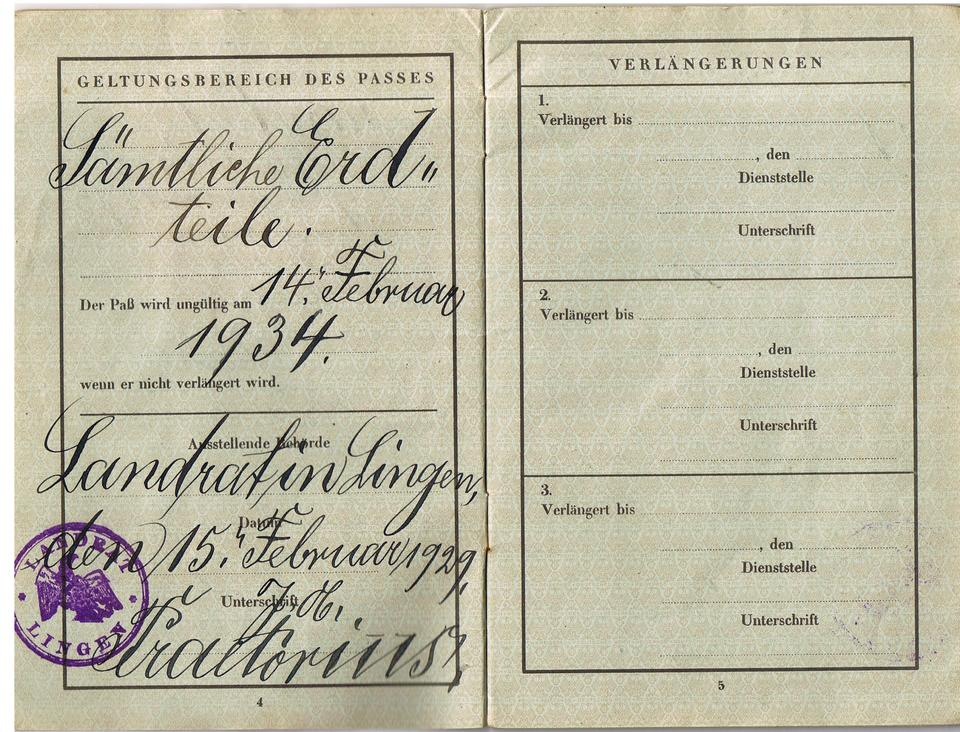 GELTUNGSBEREICH DES PASSES
Sämtliche Erd„
teile.
Der Paß wird ungültig am 14. Februar
1934.
wenn er nicht verlängert wird.
Ausstellende Behörde
Landrat in Lingen,
Datum
den 15. Februar 1929.
Unterschrift
LANDRAT
LINGEN
4
VERLÄNGERUNGEN
1.
Verlängert bis
, den
Dienststelle
Unterschrift
2.
Verlängert bis
, den
Dienststelle
Unterschrift
3.
Verlängert bis
, den
Dienststelle
Unterschrift
5